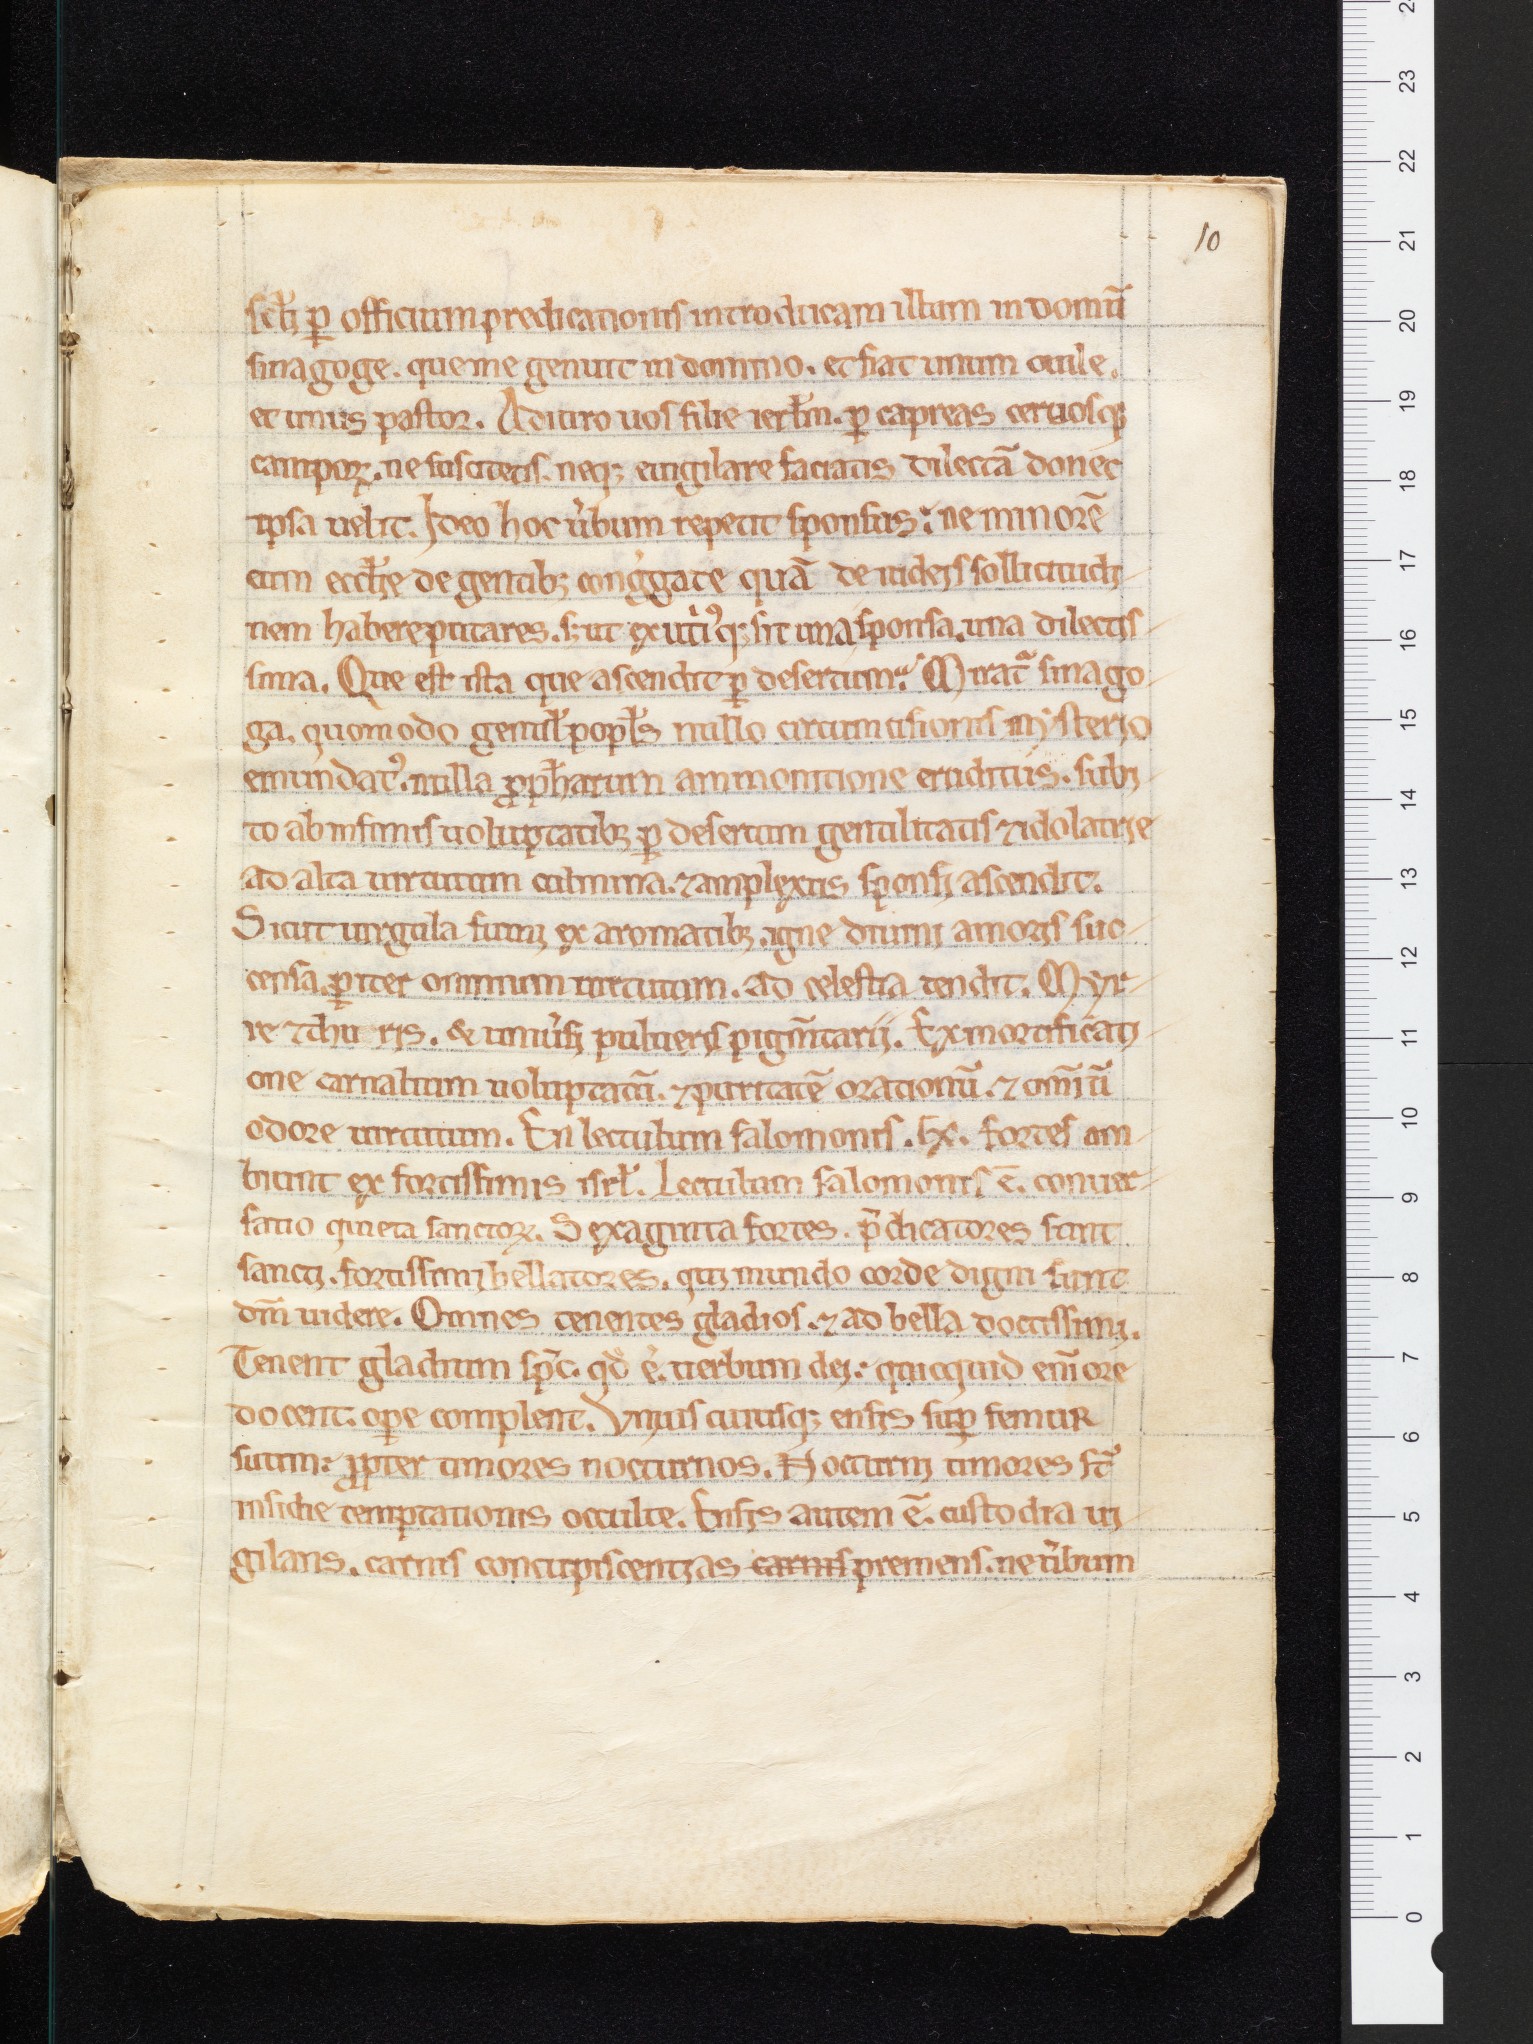 10
sclꝫ ꝑ officium predicationis introducam illum in domū
sinagoge. que me genuit in domino. et fiat unum ouile.
et unus pastor. Adiuro uos filie ierłm. ꝑ capreas ceruosqꝫ
campoꝝ. ne suscitetis. neqꝫ euigilare faciatis dilectā donec
ipsa uelit. Ideo hoc u̾bum repetit sponsus: ne minorē
eum eccłie de gentibꝫ cong̾gate quā de iudeis sollicitudi-
nem habere putares. sꝫ ut ex ut̾iꝰqꝫ sit una sponsa. una dilectis-
sima. Que est ista que ascendit ꝑ desertum? Mirat᷑ sinago-
ga. quomodo gentił popłs nullo circumcisionis mysterio
emundatꝰ. nulla ꝓpħarum ammonitione eruditus. subi-
to ab infimis uoluptatibꝫ ꝑ desertum gentilitatis ⁊ idolatrie
ad alta uirtutum culmina. ⁊ amplexus sponsi ascendit.
Sicut uirgula fumi ex aromatibꝫ. igne diuini amoris suc-
censa. ꝑ iter omnium uirtutum. ad celestia tendit. Myr-
re ⁊ thu ris. & uniu̾si pulueris pigm̄tarii. Ex mortificati-
one carnalium uoluptatū. ⁊ puritatē orationū. ⁊ om̄iū
odore uirtutum. En lectulum salomonis. lx. fortes am-
biunt ex fortissimis isrł. Lectulum salomonis ē. conuer-
satio quieta sanctoꝝ. Sexaginta fortes. p̄dicatores sunt
sancti. fortissimi bellatores. qui mundo corde digni sunt
dm̄ uidere. Omnes tenentes gladios. ⁊ ad bella doctissimi.
Tenent gladium sp̄c. qđ ē. uerbum dei: quicquid eni̅ ore
docent. oꝑe complent. Vnius cuiusqꝫ ensis suꝑ femuR
suum: ꝓpter timores nocturnos. Nocturni timores st̄
insidie temptationis occulte. Ensis autem ē. custodia ui-
gilans. carnis concupiscentias carnis premens. ne u̾bum